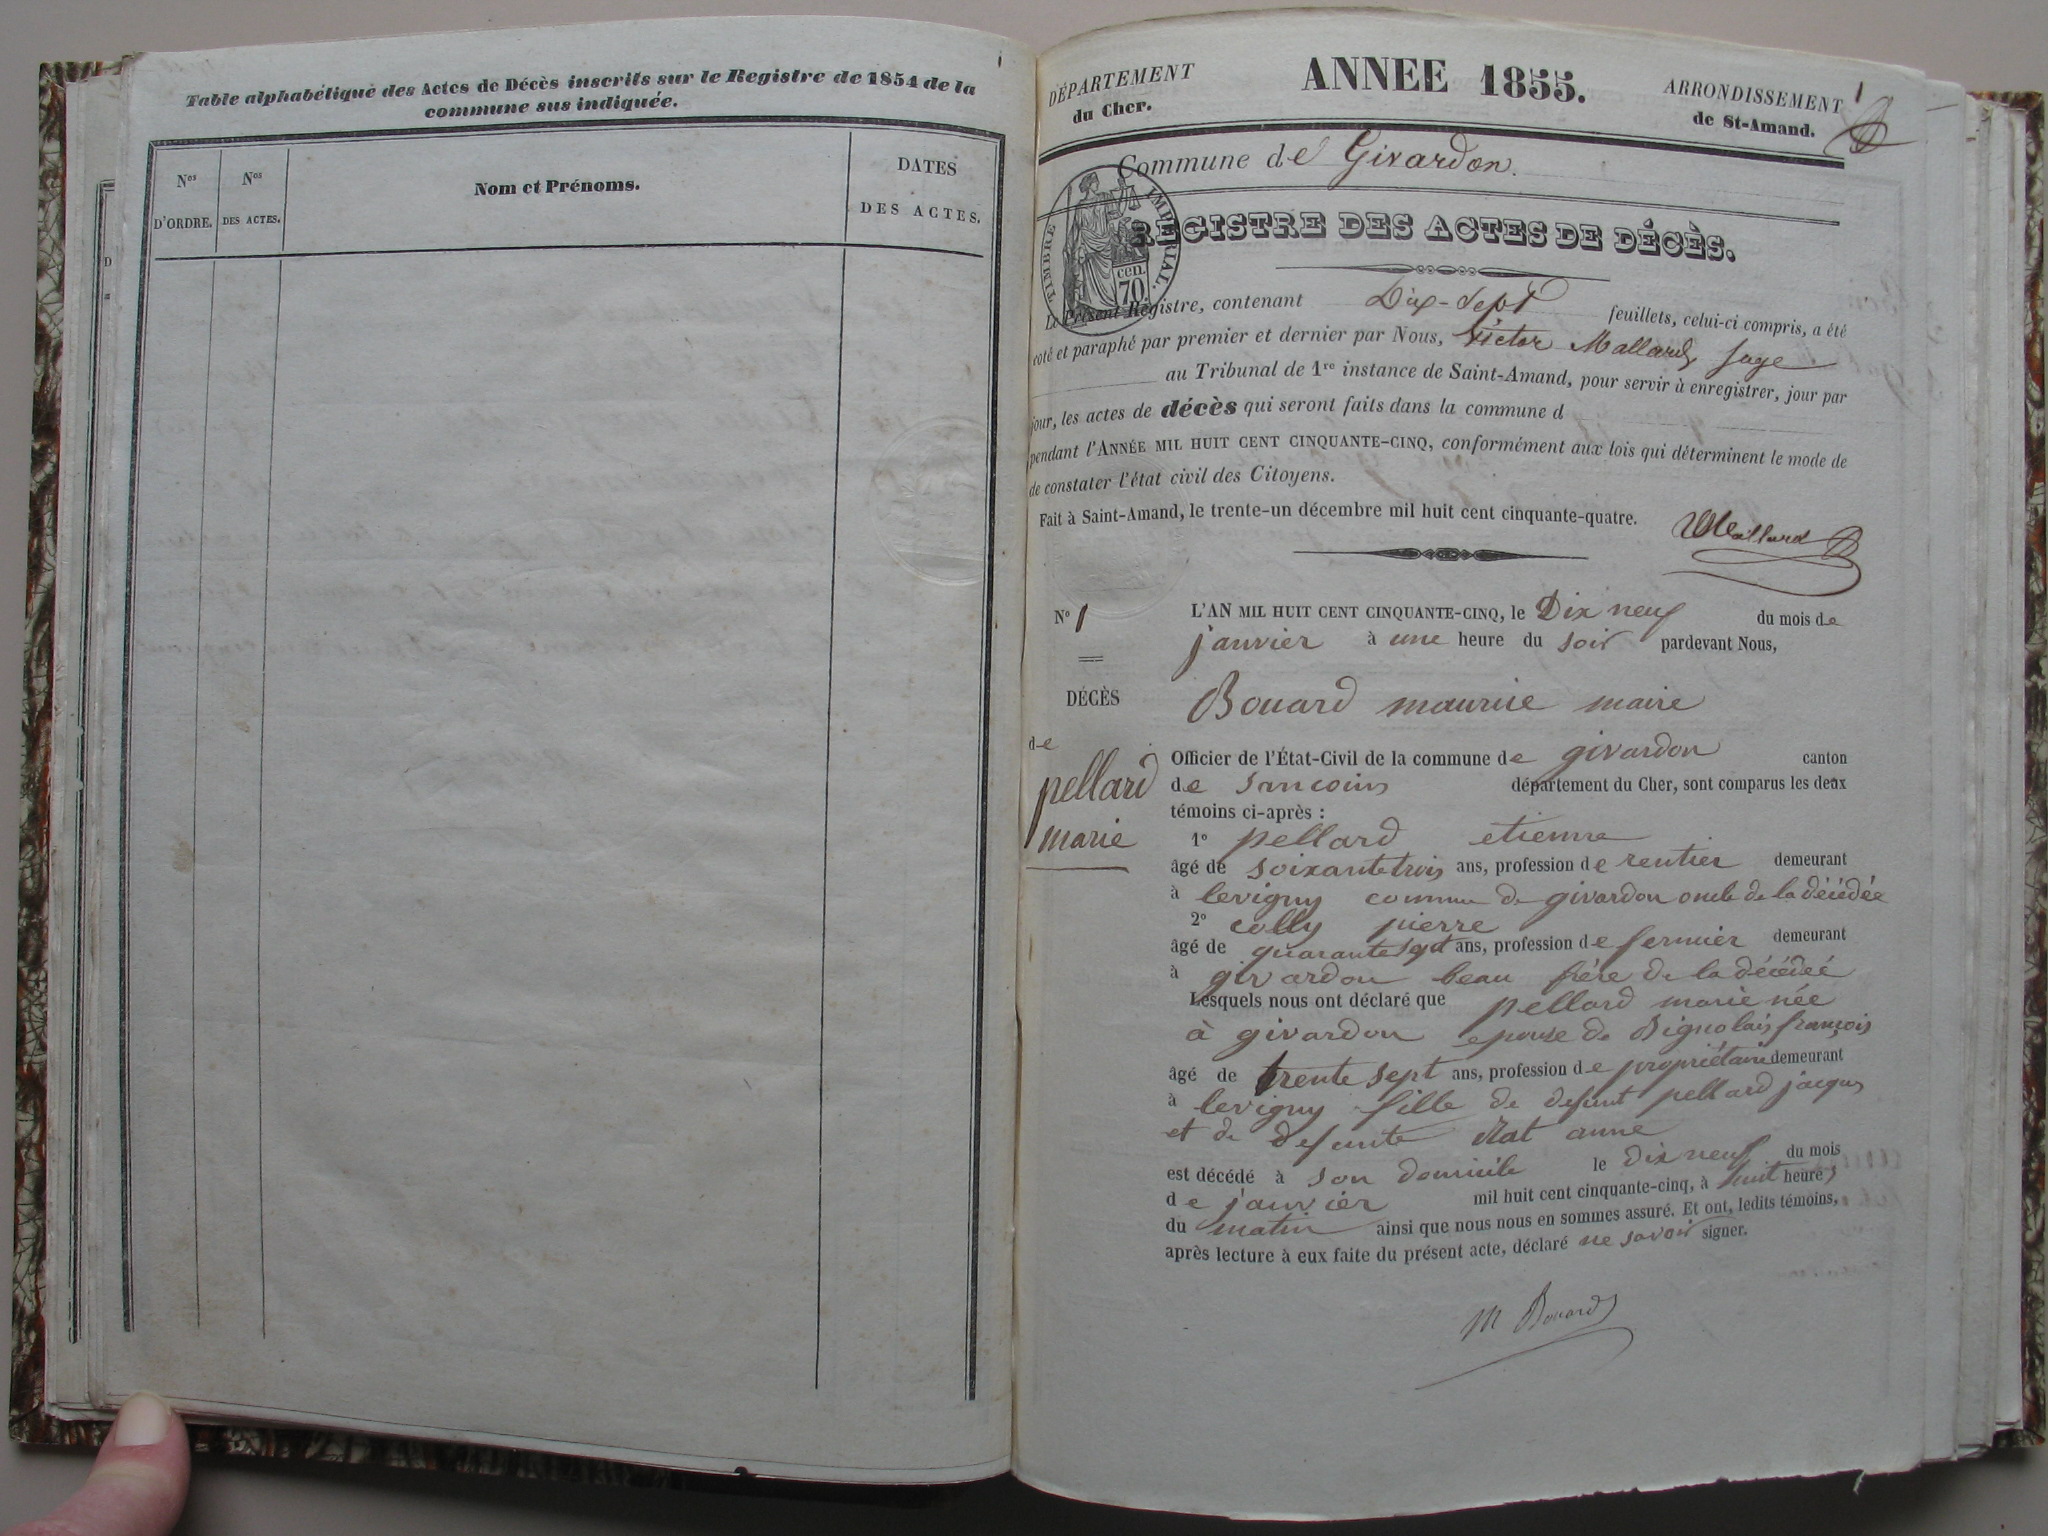 Table alphabétique des Actes de Décès inscrits sur le Registre de 1854 de la
commune sus indiquée.
Nos
D'ORDRE.
Nos
DES ACTES.
Nom et Prénoms.
DATES
DES ACTES.
1
DÉPARTEMENT
du Cher.
ANNEE 1855.
ARRONDISSEMENT
de St-Amand.
Commune de Givardon.
TIMBRE IMPÉRIAL.
cen.
70
REGISTRE DES ACTES DE DÉCÈS.
Le Présent Registre, contenant Dix-sept feuillets, celui-ci compris, a été
coté et paraphé par premier et dernier par Nous, Victor Mallard, Juge
au Tribunal de 1re instance de Saint-Amand, pour servir à enregistrer, jour par
jour, les actes de décès qui seront faits dans la commune d
pendant l'ANNÉE MIL HUIT CENT CINQUANTE-CINQ, conformément aux lois qui déterminent le mode de
de constater l'état civil des Citoyens.
Fait à Saint-Amand, le trente-un décembre mil huit cent cinquante-quatre.
VMallard
No 1
DÉCÈS
de
pellard
marie
L'AN MIL HUIT CENT CINQUANTE-CINQ, le Dix neuf du mois de
janvier à une heure du soir pardevant Nous,
Bouard maurice maire
Officier de l'État-Civil de la commune de givardon canton
de sancoins département du Cher, sont comparus les deux
témoins ci-après :
1o pellard etienne
âgé de soixante trois ans, profession de rentier demeurant
à levigny commune de givardon oncle de la décédée
2o colly pierre
âgé de quarante sept ans, profession de fermier demeurant
à givardon beau frère de la décédeé
Lesquels nous ont déclaré que pellard marie née
à givardon epouse de Bignolais françois
âgé de trente sept ans, profession de propriétaire demeurant
à levigny fille de defunt pellard jacques
et de defunte Rat anne
est décédé à son domicile le dix neuf du mois
de janvier mil huit cent cinquante-cinq, à huit heures
du matin ainsi que nous nous en sommes assuré. Et ont, ledits témoins,
après lecture à eux faite du présent acte, déclaré ne savoir signer.
M Bouard